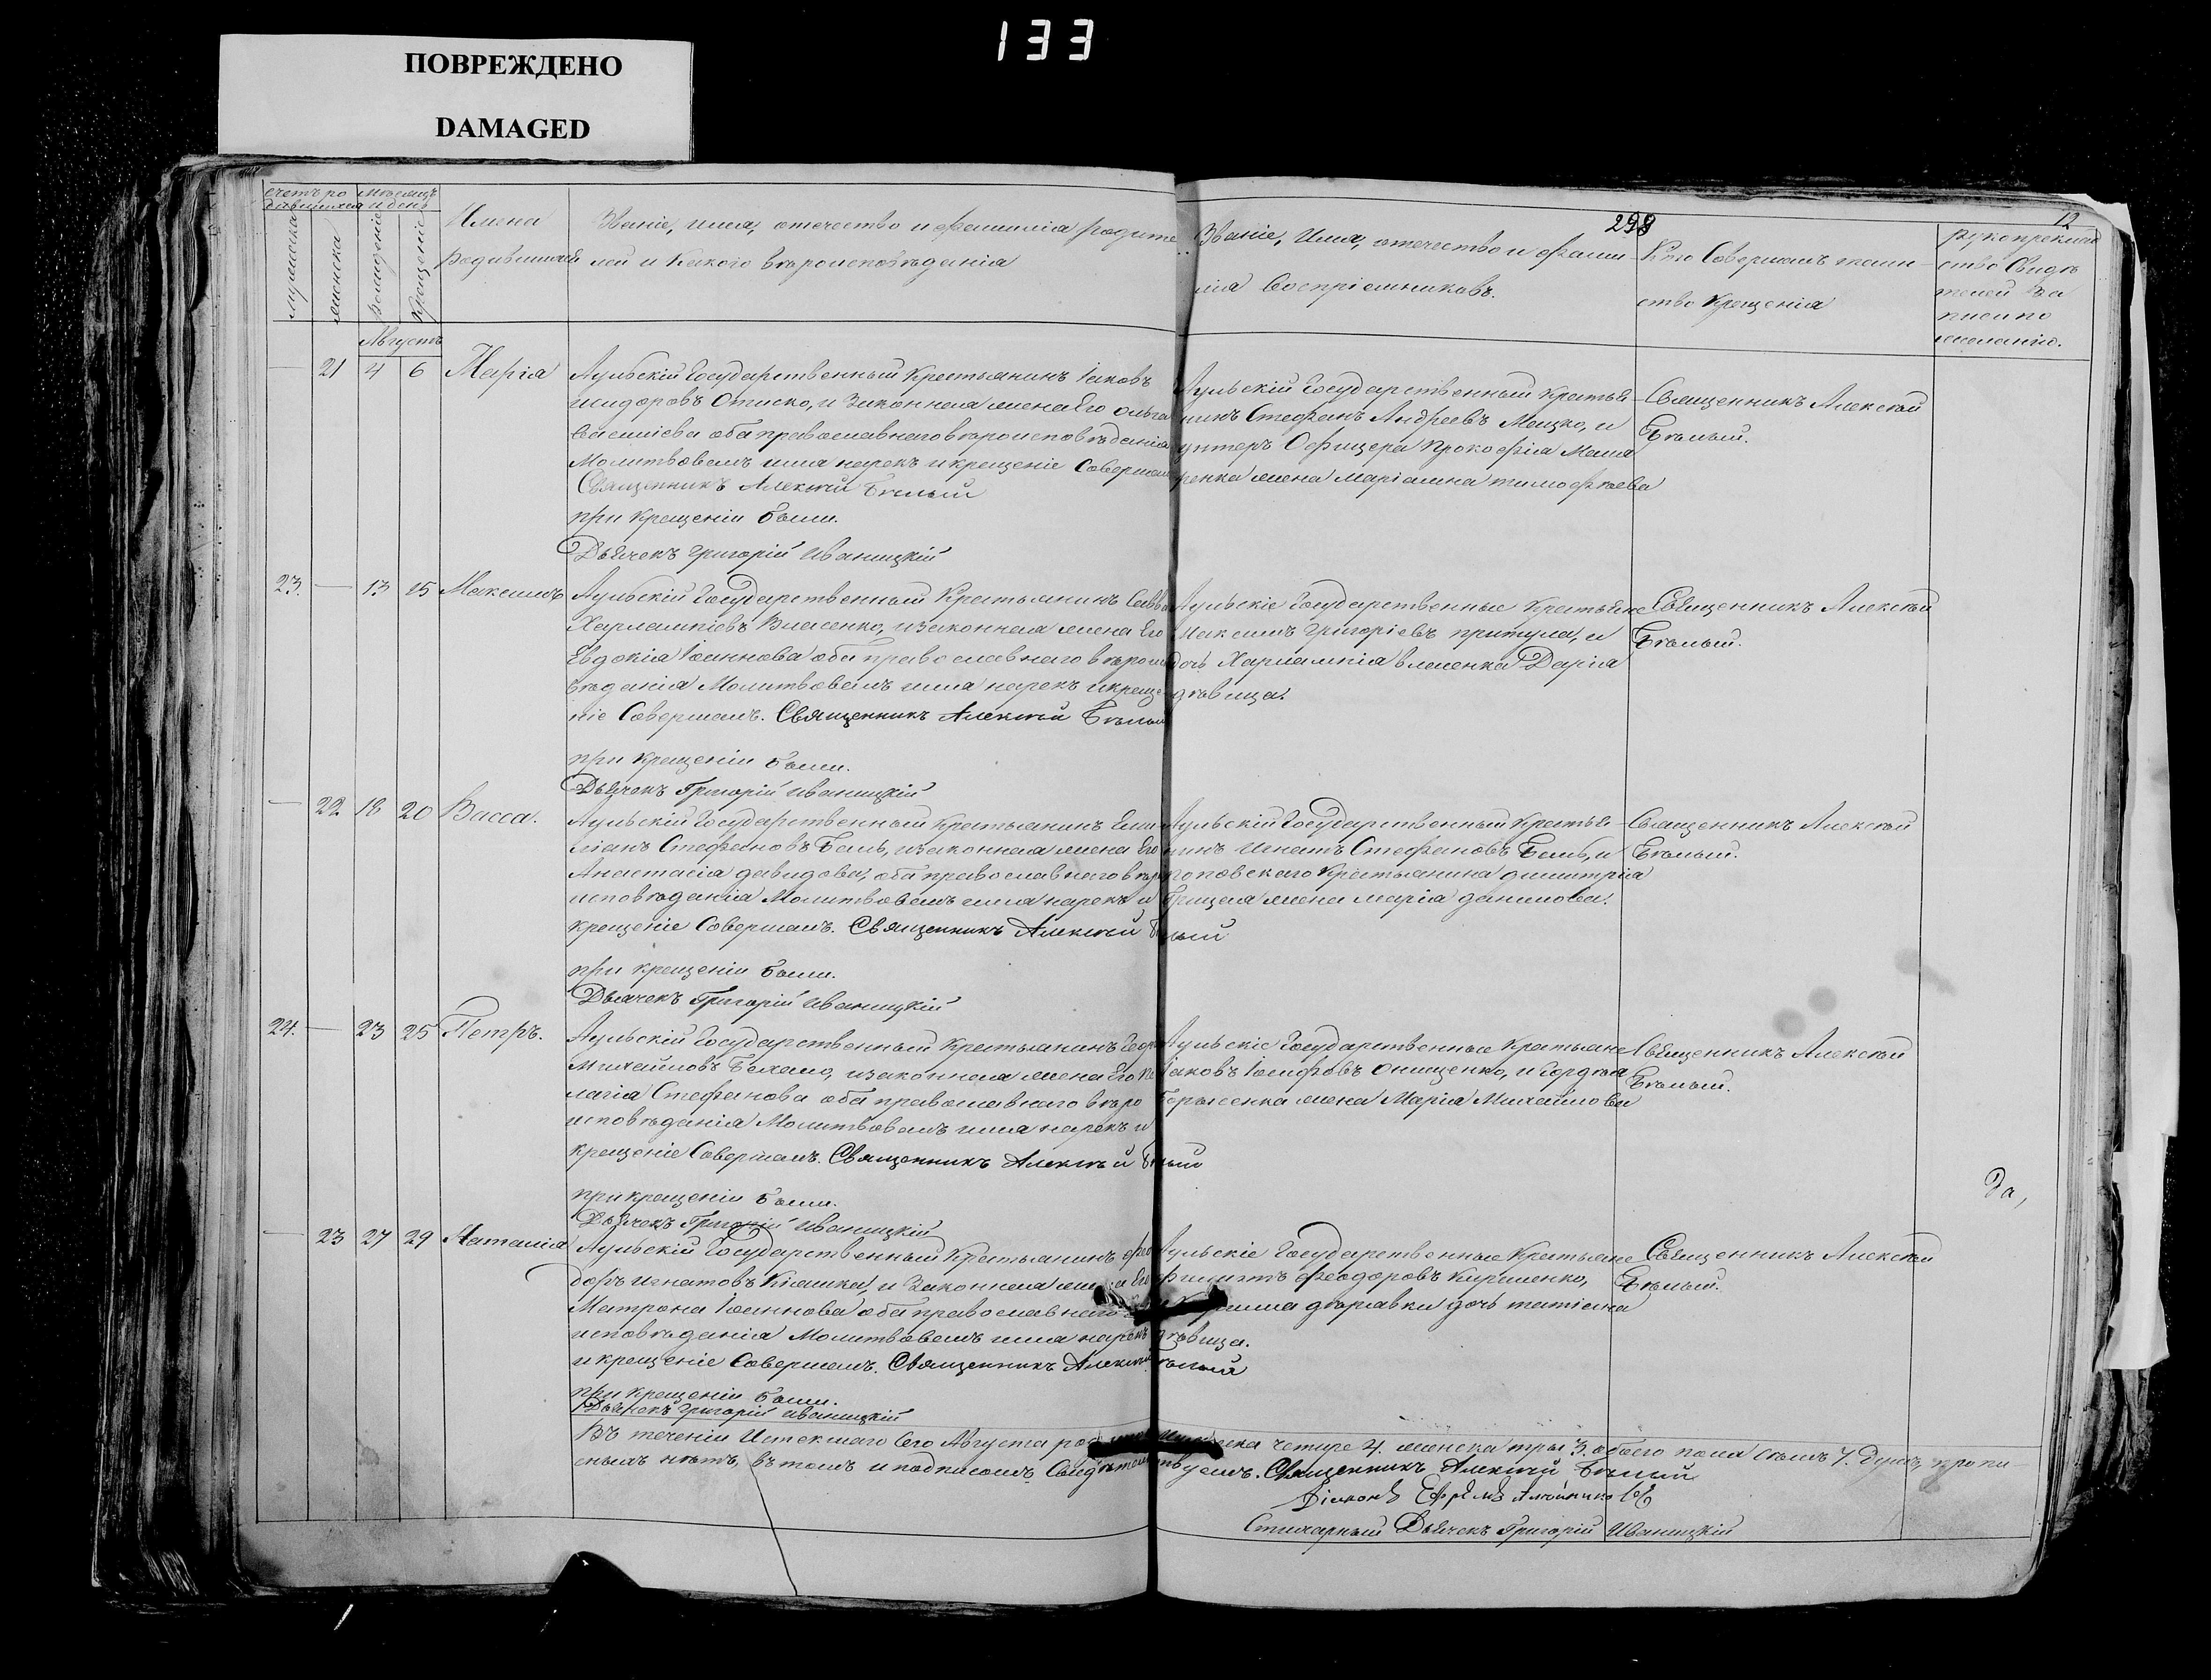 133
ПОВРЕЖДЕНО
DAMAGED
счетъ ро
дившихся
мѣсяцъ
и день
мужеска
женска
рожденіе
крещеніе
Имена
родившихся
Званіе, имя, отечество и фамилія родите
лей и какого вѣроисповѣданія
298
12
Званіе, Имя, отечество и фами-
лія Воспріемниковъ.
Кто Совершалъ таин-
ство Крещенія
рукоприклад
ство Свидѣ
телей за
писи по
желанію.
Августъ
— 21 4 6 Марія
Аульскій Государственный Крестьянинъ Іаковъ
исидоровъ Описко, и Законная жена Его ольга
Василіева оба православнаго вѣроисповѣданія
Молитвовалъ имя нарекъ и крещеніе Совершалъ
Священникъ Алексѣй Бѣлый
при крещеніи были.
Дьячекъ григорій иваницкій
Аульскій Государственный Крестья-
нинъ Стефанъ Андреевъ Мецко, и
унтеръ Офицера Прокофія Маша
ренка жена маріамна тимофѣева
Священникъ Алексѣй
Бѣлый.
23. — 13 15 Максимъ
Аульскій Государственный Крестьянинъ Савва
Харлампіевъ Власенко, и законная жена Его
Евдокія Іоаннова оба православнаго вѣроиспо
вѣданія Молитвовалъ имя нарекъ и креще
ніе Совершалъ. Священникъ Алексѣй Бѣлый
при крещеніи были.
Дьячекъ Григорій иваницкій
Аульскіе Государственные Крестьяне
Максимъ григоріевъ притула, и
дочь Харлампія власенка Дарія
дѣвица.
Священникъ Алексѣй
Бѣлый.
— 22 18 20 Васса.
Аульскій Государственный Крестьянинъ Еми-
ліанъ Стефановъ Баль, и законная жена Его
Анастасія давидова, оба православнаго вѣро
исповѣданія Молитвовалъ имя нарекъ и
крещеніе Совершалъ. Священникъ Алексѣй Бѣлый
при крещеніи были.
Дьячекъ Григорій иваницкій
Аульскій Государственный Крестья-
нинъ Игнатъ Стефановъ Баль, и
поповскаго Крестьянина димитрія
Грицая жена марія данилова.
Священникъ Алексѣй
Бѣлый.
24. — 23 25 Петръ.
Аульскій Государственный Крестьянинъ
Михайловъ Бахало, и законная жена Его Пе
лагія Стефанова оба православнаго вѣро
исповѣданія Молитвовалъ имя нарекъ и
крещеніе Совершалъ. Священникъ Алексѣй Бѣлый
при крещеніи были.
Дьячекъ Григорій иваницкій
Аульскіе Государственные Крестьяне
Іаковъ Іосифовъ онищенко, и Гордѣя
Борисенка жена Марія Михайлова
Священникъ Алексѣй
Бѣлый.
Да,
— 23 27 29 Наталія
Аульскій Государственный Крестьянинъ фео
доръ игнатовъ Кіашка, и Законная жена Его
Матрона Іоаннова оба православнаго
исповѣданія Молитвовалъ имя нарекъ
и крещеніе Совершалъ. Священникъ Алексѣй Бѣлый
при крещеніи были.
Дьячекъ григорій иваницкій
Аульскіе Государственные Крестьяне
феодоровъ Кириленко,
дочь татіана
дѣвица.
Священникъ Алексѣй
Бѣлый.
Въ теченіи Истекшаго Сего Августа четыре 4. женска три 3. обоего пола семъ 7. душъ, пропи-
сныхъ нѣтъ, въ томъ и подписомъ Свидѣтельствуемъ. Священникъ Алексѣй Бѣлый
Діаконъ Ефремъ
Стихарный Дьячекъ Григорій Иваницкій